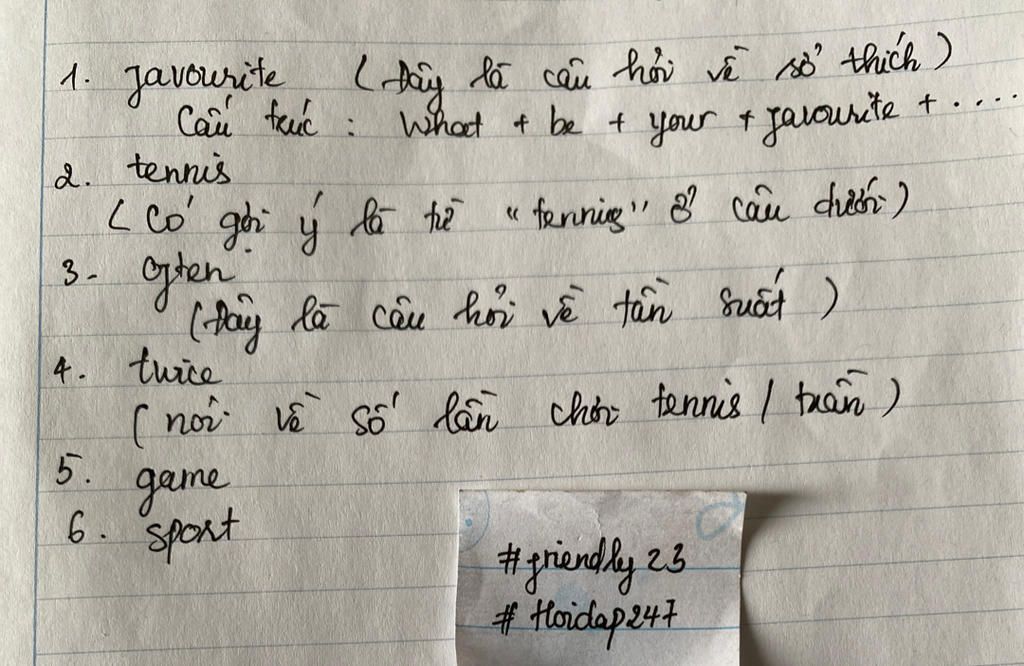 1. favourite (Đây là câu hỏi về sở thích)
Cấu trúc : What + be + your + favourite + ....
2. tennis
(Có gợi ý là từ "tennis" ở câu dưới)
3- often
(Đây là câu hỏi về tần suất)
4. twice
(nói về số lần chơi tennis / tuần)
5. game
6. sport
#friendly23
# Hoidap247